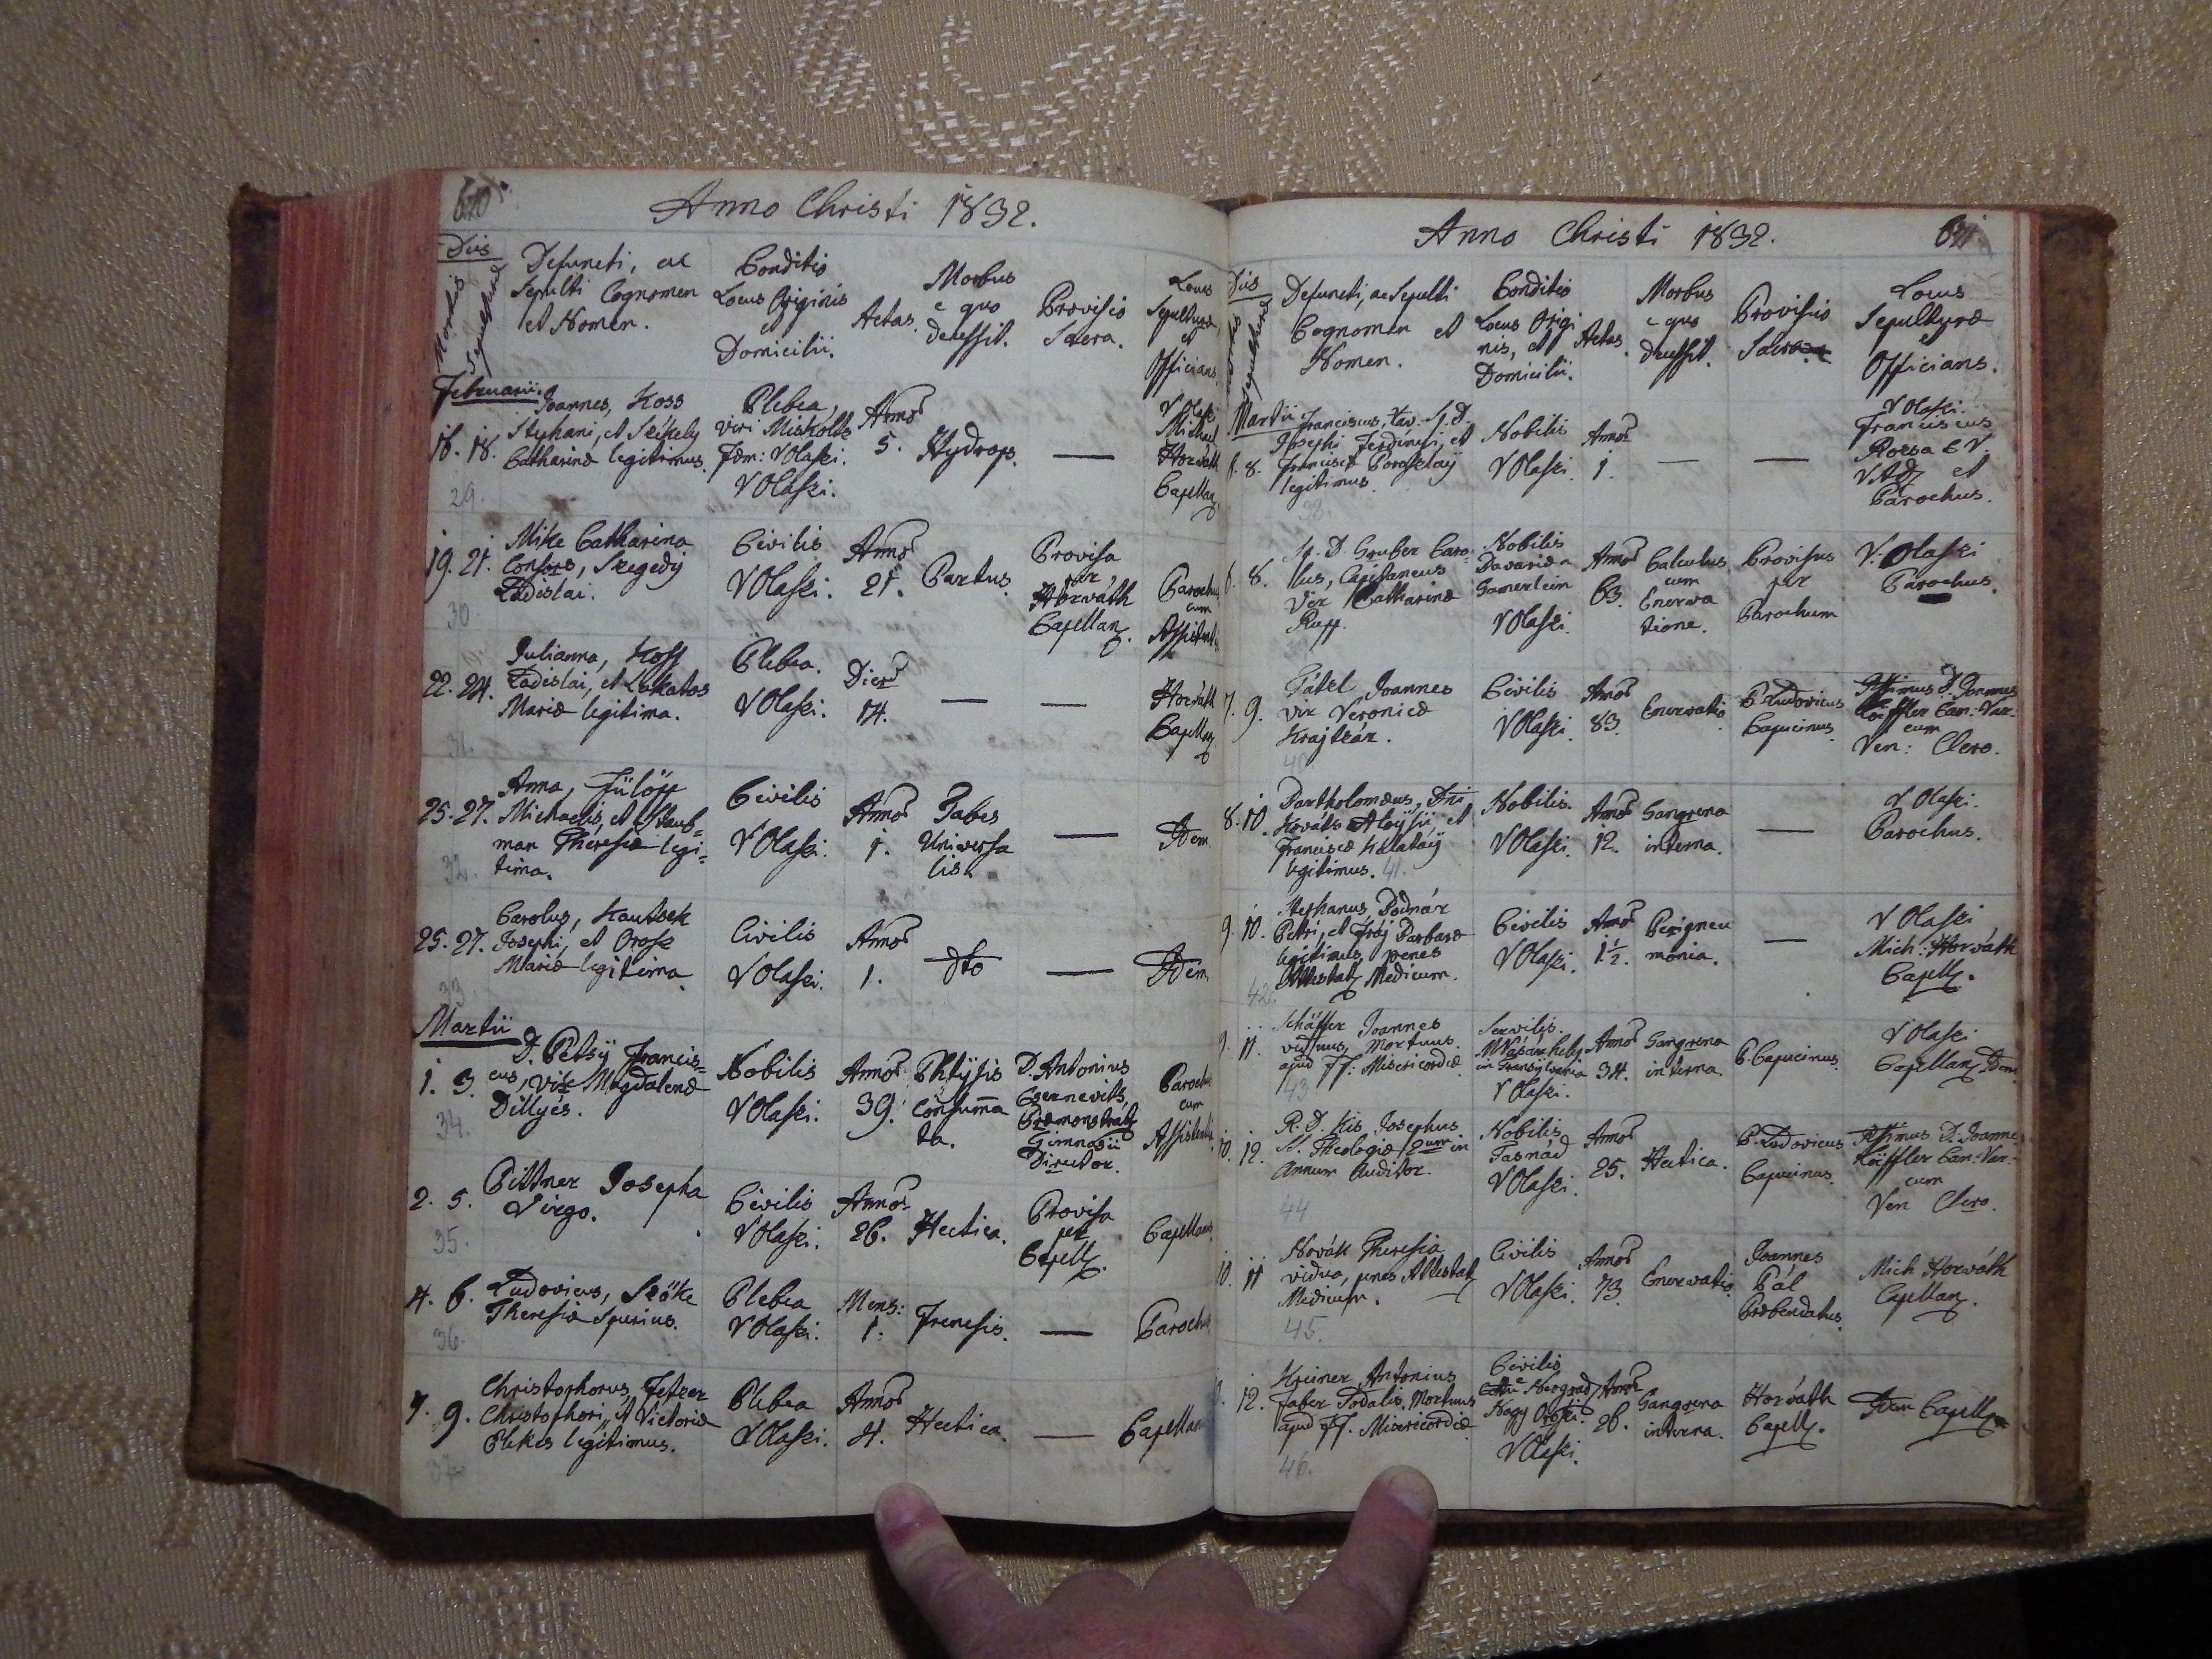 Anno Christi 1832.
Dies
Mortis
Sepulturæ
Defuncti, ac
Sepulti Cognomen
et Nomen.
Conditio
Locus Originis
et
Domicilii.
Aetas.
Morbus
e quo
decessit.
Provisio
Sacra.
Locus
Sepulturæ
et
Officians.
Februarii.
16. 18.
Joannes, Koss
Stephani, et Székely
Catharinæ legitimus.
29.
Plebea,
viri Miskoltz
Fœm: VOlaszi.
VOlaszi.
Annor
5.
Hydrops.
—
V Olaszi
Michael
Horváth
Capellan
19. 21.
Mike Catharina
Consors, Szegedy
Ladislai.
30
Civilis
VOlaszi.
Annor
21.
Partus.
Provisa
per
Horváth
Capellan.
Parochus
cum
Assistentia
22. 24.
Julianna, Koss
Ladislai, et Lakatos
Mariæ legitima.
31.
Plebea.
VOlaszi.
Dierum
14.
—
—
Horváth
Capellan
25. 27.
Anna, Fülöpp
Michaelis, et Straub=
man Theresiæ legi=
tima.
32.
Civilis
VOlaszi.
Annor
1.
Tabes
Universa
lis.
—
Idem
25. 27.
Carolus, Kautsek
Josephi, et Orosz
Mariæ legitima.
33.
Civilis
VOlaszi.
Annor
1.
dto
—
Idem
Martii
1. 3.
D. Pétsÿ Francis=
cus, vir Magdalenæ
Dillyés.
34.
Nobilis
VOlaszi.
Annor
39.
Phtÿsis
consumma
ta.
D. Antonius
Csernevits,
Præmonstrat
Gimnasii
Director.
Parochus
cum
Assistentia
2. 5.
Bittner Josepha
Virgo.
35.
Civilis
VOlaszi.
Annor
26.
Hectica.
Provisa
per
Capell.
Capellan
4. 6.
Ludovicus, Szőke
Theresiæ Spurius.
36.
Plebea
VOlaszi.
Mens:
1.
Frenesis.
—
Parochus
7. 9.
Christophorus, Fetzer
Christophori, et Victoriæ
Elekes legitimus.
37.
Plebea
VOlaszi.
Annor
4.
Hectica.
—
Capellan
Anno Christi 1832.
Dies
Sepulturæ
Defuncti, ac Sepulti
Cognomen et
Nomen.
Conditio
Locus Origi
nis, et
Domicilii.
Aetas.
Morbus
e quo
decessit.
Provisio
Sacra
Locus
Sepulturæ
et
Officians.
Martii
8.
Franciscus,
Josephi Ferdinesi, et
Franciscæ
legitimus.
Nobilis
VOlaszi.
Annor
1.
—
—
V Olaszi.
Franciscus
et
Parochus.
6. 8.
Sp. D. Gruber Caro=
lus, Capitaneus
Vir Catharinæ
Rupp.
Nobilis
Bavariæ
VOlaszi.
Annor
63.
Calculus
cum
Enerva
tione.
Provisus
per
Parochum
V. Olaszi
Parochus.
7. 9.
Joannes
vir Veronicæ
Krajtzár.
40.
Civilis
VOlaszi.
Annor
83.
Enervatio
P. Ludovicus
Capucinus.
D. Joannes
Köffler Can: Var.
cum
Ven: Clero.
8. 10.
Bartholomæus, Dni
Kováts Aloÿsii, et
Franciscæ
legitimus. 41.
Nobilis.
VOlaszi.
Annor
12.
Gangrena
interna.
—
V Olaszi.
Parochus.
9. 10.
Stephanus, Bodnár
Petri, et Fráj Barbaræ
legitimus, penes
Attestat Medicum.
42.
Civilis
VOlaszi.
Annor
1½.
Peripneu
monia.
—
V Olaszi
Mich: Horváth
Capell.
9. 11.
Schäffer Joannes
viduus, Mortuus
apud FF. Misericordiæ
43.
Servilis.
MVásárhely
in Transÿlvania
VOlaszi.
Annor
34.
Gangrena
interna.
P. Capucinus.
V Olaszi
Capellan Idem
10. 12.
R. D. Kis Josephus
S. Theologiæ 2um in
Annum Auditor.
44
Nobilis
Tasnád
VOlaszi.
Annor
25.
Hectica.
P. Ludovicus
Capucinus.
D. Joannes
Köffler Can: Var.
cum
Ven Clero.
10. 11
Novák Theresia
vidua, penes Attestat
Medicum.
45.
Civilis
VOlaszi.
Annor
73.
Enervatio
Joannes
Pál
Præbendatus.
Mich Horváth
Capellan.
12.
Kreiner Antonius
Faber Sodalis, Mortuus
apud FF. Misericordiæ
46.
Civilis
Neograd
Nagy Oroszi.
VOlaszi.
Annor
26.
Gangrena
interna.
Horváth
Capell.
Idem Capell